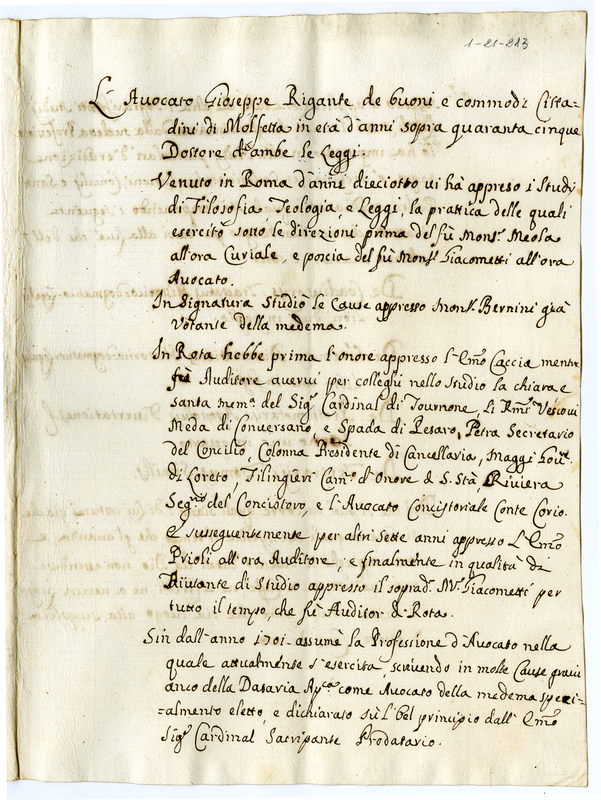 1-21-213
L'Avocato Gioseppe Rigante de buoni e commodi Citta=
dini di Molfetta in età d'anni sopra quaranta cinque
Dottore d'ambe le Leggi.
Venuto in Roma d'anni dieciotto vi hà appreso i Study
di Filosofia Teologia, e Leggi, la prattica delle quali
esercitò sotto le direzioni prima del fù Mons.r Meola
all'ora Curiale, e poscia del fù Mons.r Giacometti all'ora
Avocato.
In Signatura Studiò le Cause appresso Mons.r Bernini già
Votante della medema.
In Rota hebbe prima l'onore appresso l'Emo Caccia mentre
fù Auditore avervi per colleghi nello Studio la chiara e
santa mem.a del Sig.r Cardinal di Tournone, li Rmi Vescovi
Meda di Conversano, e Spada di Pesaro, Petra Secretario
del Concilio, Colonna Presidente di Cancellaria, Maggi Gov.re
di Loreto, Filingieri Cam.o d'Onore di S. Stà, Riviera
Seg.rio del Concistoro, e l'Avocato Concistoriale Conte Corio.
E susseguentemente per altri sette anni appresso l'Emo
Prioli all'ora Auditore, e finalmente in qualità di
Aiutante di Studio appresso il soprad.o Mr. Giacometti per
tutto il tempo, che fù Auditor di Rota.
Sin dall'anno 1701 assumè la Professione d'Avocato nella
quale attualmente s'esercita, scrivendo in molte Cause gravi
anco della Dataria Ap.ca come Avocato della medema speci=
=almente eletto, e dichiarato sù l bel principio dall'Emo
Sig.r Cardinal Sacripante Prodatario.